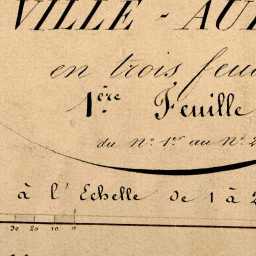 VILLE - AU
en trois feu
1ère Feuille
du N.° 1er au N.° 2
à l'Echelle de 1 à 2
30 20 10 0